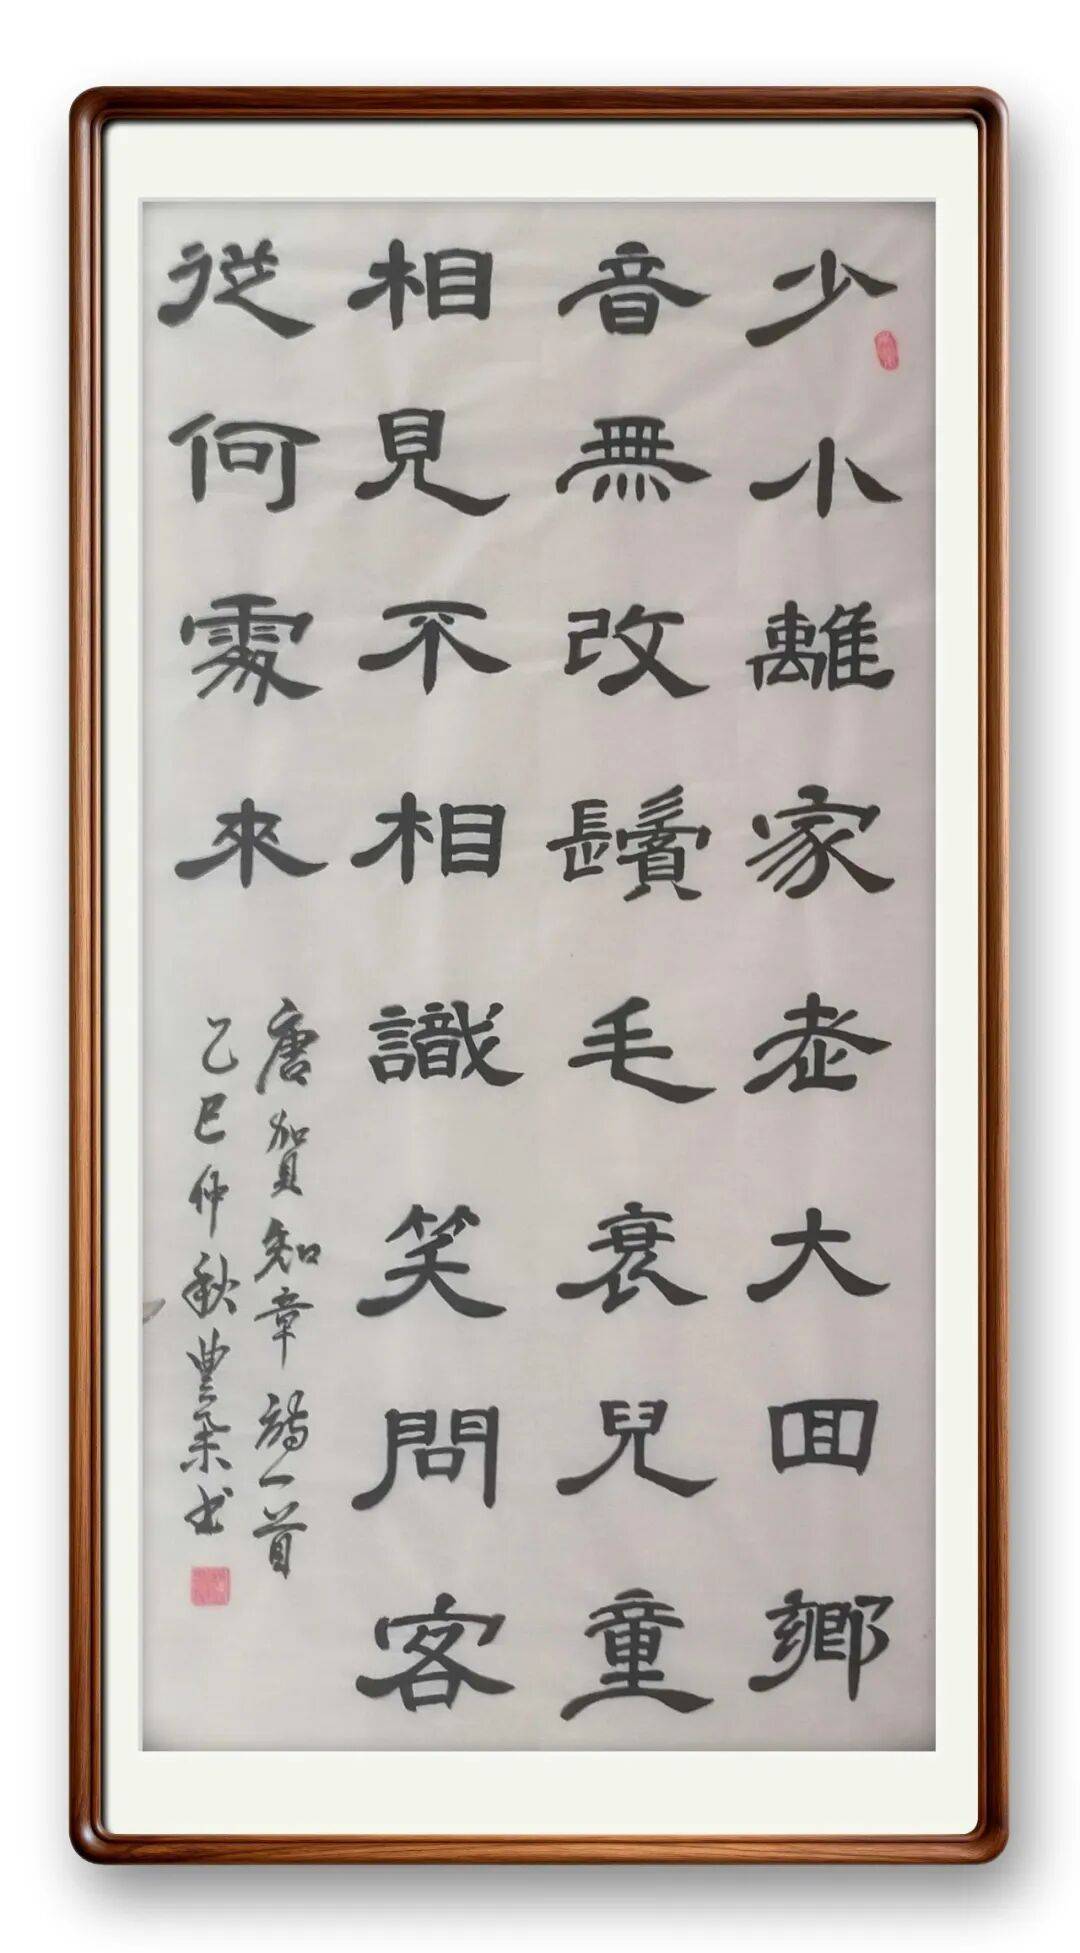 少小離家老大回鄉
音無改鬢毛衰兒童
相見不相識笑問客
從何處來
唐賀知章詩一首
乙巳仲秋豐年書